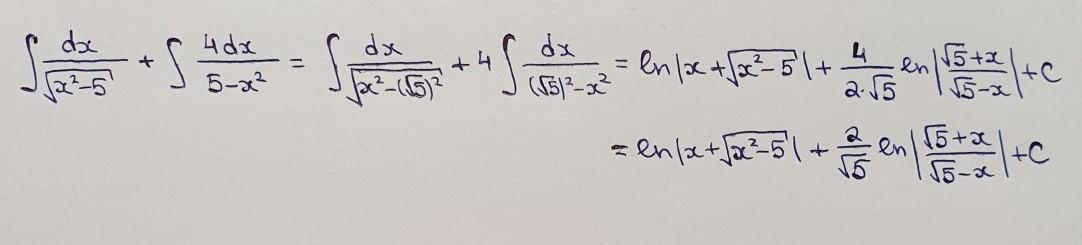 ∫ dx/√(x²-5) + ∫ 4dx/(5-x²) = ∫ dx/√(x²-(√5)²) + 4 ∫ dx/((√5)²-x²) = ln|x+√(x²-5)| + 4/(2·√5) ln|(√5+x)/(√5-x)| + C
= ln|x+√(x²-5)| + 2/√5 ln|(√5+x)/(√5-x)| + C